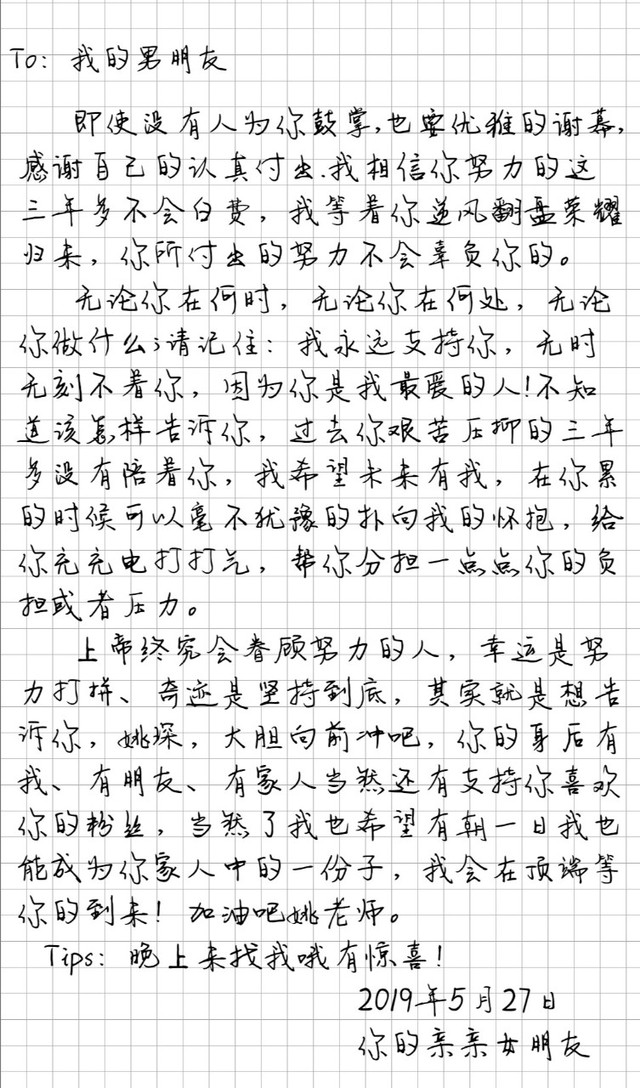 To: 我的男朋友
即使没有人为你鼓掌,也要优雅的谢幕,
感谢自己的认真付出.我相信你努力的这
三年多不会白费，我等着你逆风翻盘荣耀
归来，你所付出的努力不会辜负你的。
无论你在何时，无论你在何处，无论
你做什么;请记住：我永远支持你，无时
无刻不着你，因为你是我最爱的人!不知
道该怎样告诉你，过去你艰苦压抑的三年
多没有陪着你，我希望未来有我，在你累
的时候可以毫不犹豫的扑向我的怀抱，给
你充充电打打气，帮你分担一点点你的负
担或者压力。
上帝终究会眷顾努力的人，幸运是努
力打拼、奇迹是坚持到底，其实就是想告
诉你，姚琛，大胆向前冲吧，你的身后有
我、有朋友、有家人当然还有支持你喜欢
你的粉丝，当然了我也希望有朝一日我也
能成为你家人中的一份子，我会在顶端等
你的到来！加油吧姚老师。
Tips: 晚上来找我哦有惊喜！
2019年5月27日
你的亲亲女朋友